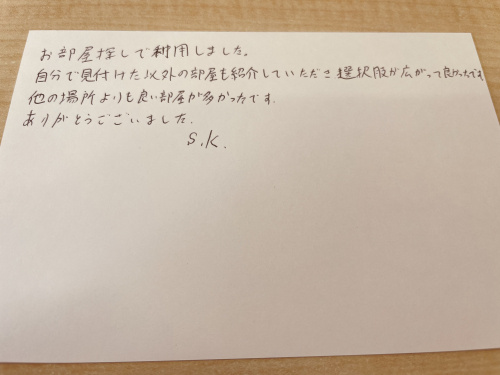 お部屋探しで利用しました。
自分で見付けた以外の部屋も紹介していただき選択肢が広がって良かったです
他の場所よりも良い部屋が多かったです.
ありがとうございました.
S.K.